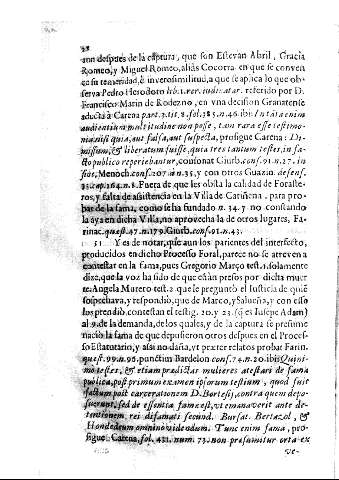 aun despues de la captura, que son Estevan Abril, Gracia
Romeo, y Miguel Romeo, aliàs Cocorra, en que se conven
ce su temeridad, è inverosimilitud, a que se aplica lo que ob-
serva Pedro Herodoro lib.1.rer.indicatar. referido por D.
Francisco Marin de Rodezno, en vna decision Granatense
aducta à Carena part.3.tit.8. fol.385.n.46.ibi: Intátaenim
audientium multitudine non posse, tam rara esse testimo-
nia, nisi quia, aut falsa, aut suspecta, prosigue Carena: Di-
missum, & liberatum fuisse, quia tres tantum testes, in fa-
cto publico reperiebantur, consonat Giurb. conf.91.n.27. in
fin, Menoch. conf.207.à n.35, y con otros Guazin. defens.
33. cap.26 4.n.8. Fuera de que les obsta la calidad de Foraste-
ros, y falta de assistencia en la Villa de Cariñena. para pro-
bar de la fama, como se ha fundado n. 34. y no constando
la aya en dicha Villa, no aprovecha la de otros lugares, Fa-
rinac. quæst.47.n.179. Giurb. conf.91.n.43.
51 Y es de notar, que aun los parientes del interfecto,
producidos en dicho Processo Foral, parece no se atreven a
contestar en la fama, pues Gregorio Março test. 1. solamente
dize, que la voz ha sido de que estàn presos por dicha muer
te. Angela Murero test. 2. que le preguntò el Iusticia de quiè
sospechava, y respondiò, que de Marco, y Salueña, y con esso
los prendiò. contestan el testig. 20. y 23. (q̃ es Iusepe Adam)
al 9. de la demanda, de los quales, y de la captura se presume
naciò la fama de que depusieron otros despues en el Proces-
so Estatutario, y assi no daña, vt præter relatos probat Farin.
quæst.99.n.95. punctim Bardelon conf.74.n.20.ibi: Quini-
mo testes, & etiam prædictas mulieres atestari de fama
publica, post primum examen ipsorum testium, quod fuit
factum post carcerationem D. Bortesij, contra quem depo-
suerunt, sed de essentia famæ est, vt emanaverit ante de-
tentionem rei difamati secund. Bursat. Bertazol, &
Hondedeum omnino videndum. Tunc enim fama, pro-
sigue Carena, fol. 431. num. 73. non præsumitur orta ex
ve-